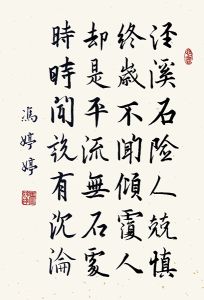 泾溪石险人兢慎
终歲不闻傾覆人
却是平流無石處
時時闻説有沉淪
馮婷婷